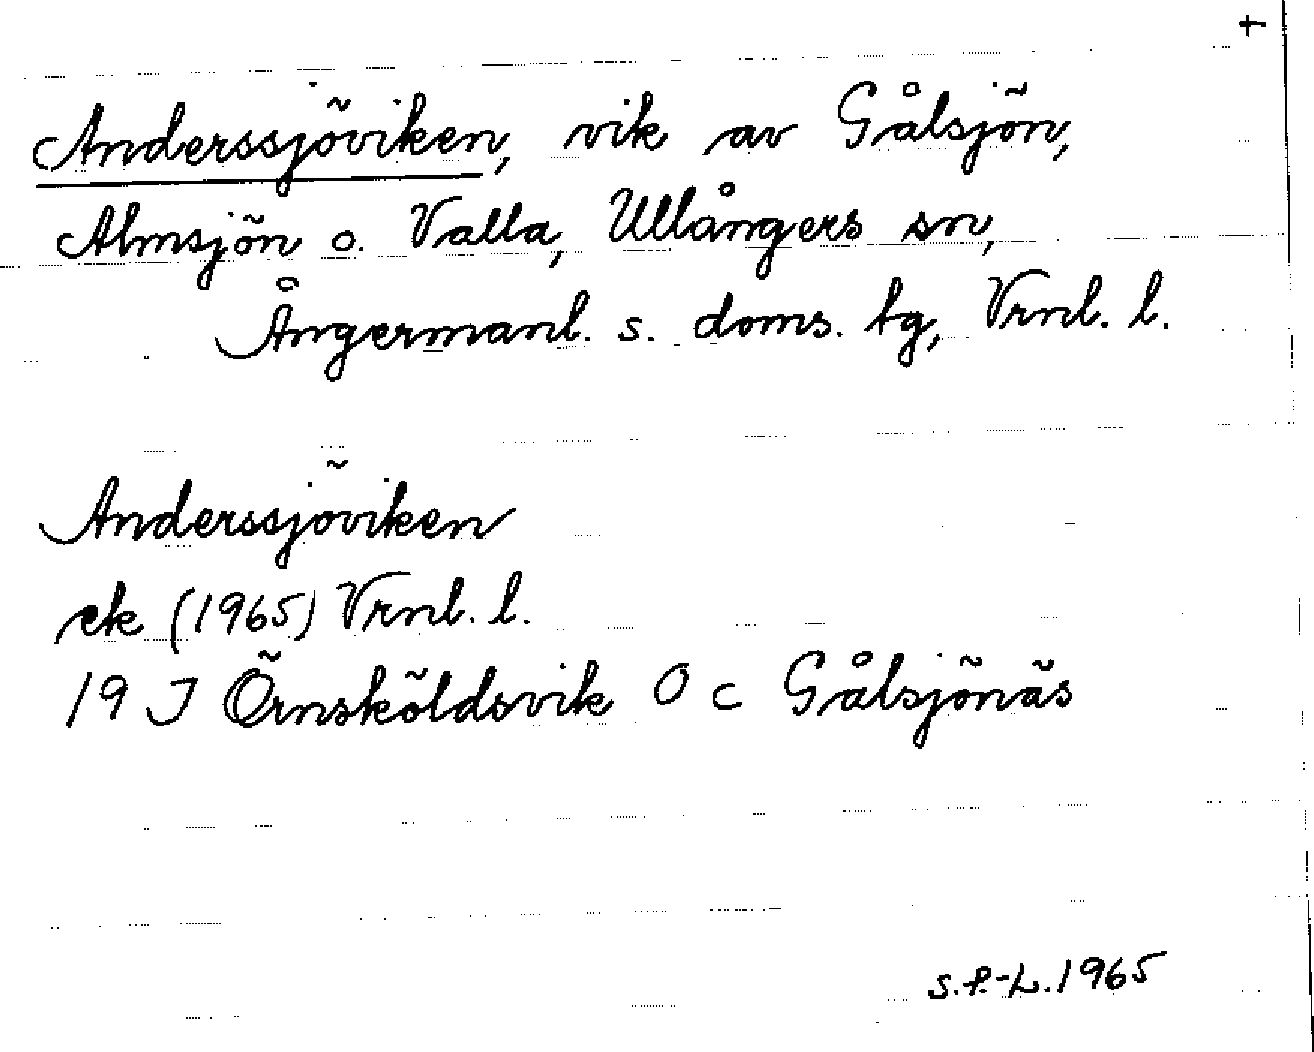 +
Anderssjöviken, vik av Gålsjön,
Almsjön o. Valla, Ullångers sn,
Ångermanl. s. doms. tg, Vrnl. l.
Anderssjöviken
ek (1965) Vrnl. l.
19 J Örnsköldsvik O c Gålsjönäs
S.P.-L. 1965